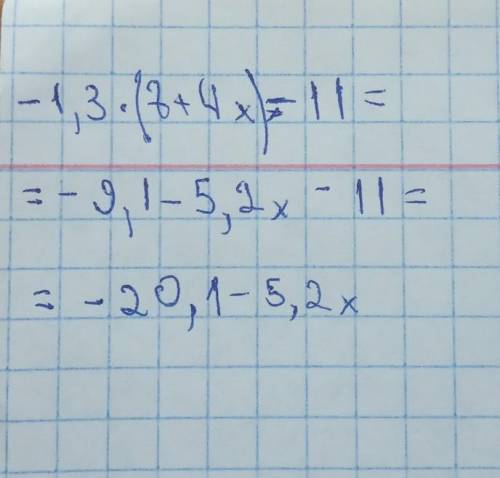 -1,3·(7+4x)-11=
=-9,1-5,2x-11=
=-20,1-5,2x